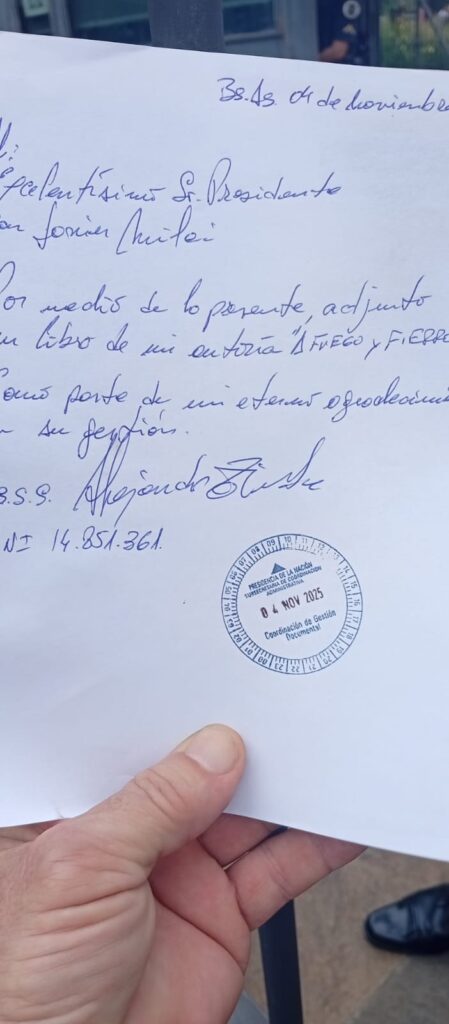 Bs.As. 04 de Noviembre
l:
Excelentísimo Sr. Presidente
on Javier Milei
Por medio de la presente, adjunto
un libro de mi autoría "A FUEGO y FIERRO
Como parte de mi eterno agradecimi
a su gestión.
B.S.S. Alejandro
NI 14.851.361.
PRESIDENCIA DE LA NACIÓN
SUBSECRETARIA DE COORDINACION
ADMINISTRATIVA
04 NOV 2025
Coordinación de Gestión
Documental